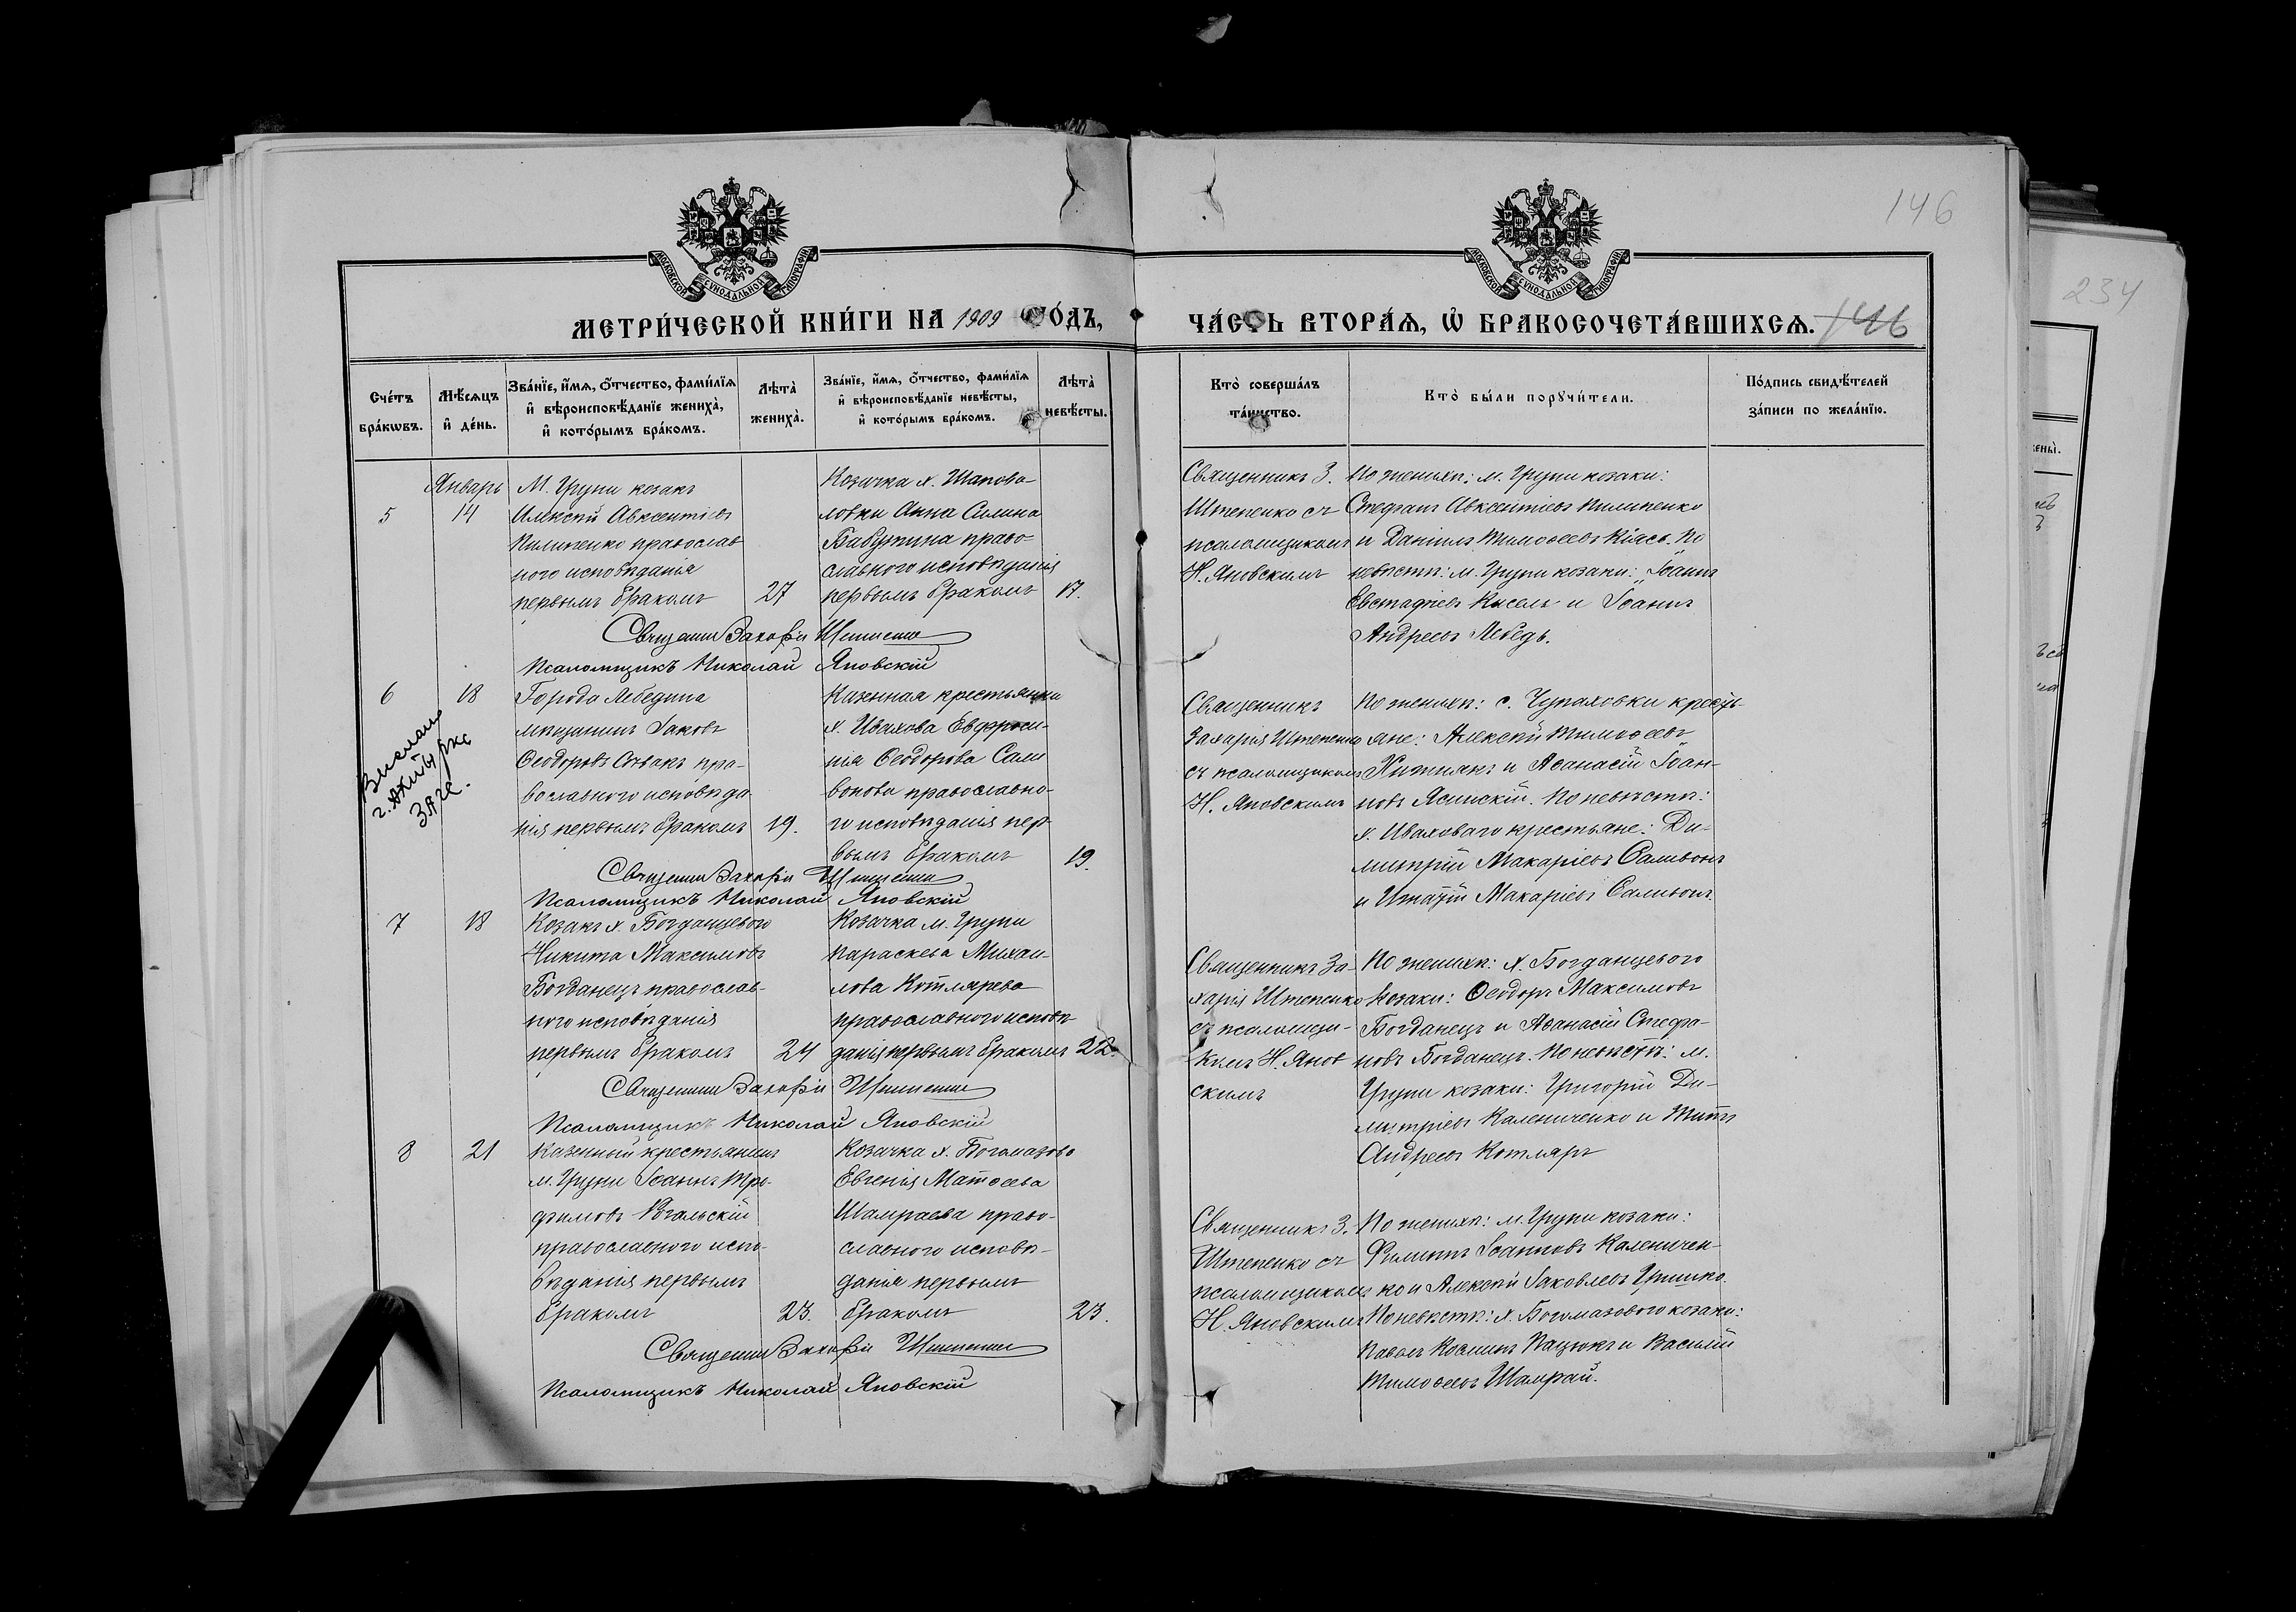 146
234
МОСКОВСКОЙ СѴНОДАЛЬНОЙ ТИПОГРАФІИ
МОСКОВСКОЙ СѴНОДАЛЬНОЙ ТИПОГРАФІИ
МЕТРИ́ЧЕСКОЙ КНИ́ГИ НА 1909 ГО́ДЪ,
ЧА́СТЬ ВТОРА́Ѧ, Ѽ БРАКОСОЧЕТА́ВШИХСѦ. 146
Сче́тъ бра́кѡвъ.
Мѣ́сѧцъ и҆ де́нь.
Зва́нїе, и҆́мѧ, ѻ҆́тчество, фами́лїѧ и҆ вѣроисповѣ́данїе жениха̀, и҆ кото́рымъ бра́комъ.
Лѣта̀ жениха̀.
Зва́нїе, и҆́мѧ, ѻ҆́тчество, фами́лїѧ и҆ вѣроисповѣ́данїе невѣ́сты, и҆ кото́рымъ бра́комъ.
Лѣта̀ невѣ́сты.
Кто̀ соверша́лъ та́инство.
Кто̀ бы́ли порꙋчи́тели.
По́дпись свидѣ́телей за́писи по жела́нїю.
Январь
5
14
М. Груни козакъ
Алексѣй Авксентіевъ
Пилипенко православ
ного исповѣданія
первымъ бракомъ
27
Козачка х. Шапова-
ловки Анна Силина
Бабужина право-
славного исповѣданія
первымъ бракомъ
17.
Священникъ З.
Штепенко съ
псаломщикомъ
Н. Яновскимъ
По женихѣ: м. Груни козаки:
Стефанъ Авксентіевъ Пилипенко
и Даніилъ Тимоѳеевъ По
невѣстѣ: м. Груни козаки: Іоаннъ
Евстафіевъ Кисель и Іоаннъ
Андреевъ Лебедь.
Священник Захарій Штепенко
Псаломщикъ Николай Яновскій
6
18
Города Лебедина
мѣщанинъ Іаковъ
Ѳеодоровъ пра-
вославного исповѣда
нія первымъ бракомъ
19.
Казенная крестьянка
х. Ивахова Евфроси-
нія Ѳеодорова Сали
вонова православно-
го исповѣданія пер-
вымъ бракомъ
19.
Священникъ
Захарія Штепенко
съ псаломщикомъ
Н. Яновскимъ
По женихѣ: с. Чупаховки кресть-
яне: Алексѣй Тимоѳеевъ
Хижнякъ и Аѳанасій Іоан-
новъ Ясинскій. По невѣстѣ:
х. Иваховаго крестьяне: Ди-
митрій Макаріевъ Саливонъ
и Игнатій Макаріевъ Саливонъ.
Священник Захарій Штепенко
Псаломщикъ Николай Яновскій
7
18
Козакъ х. Богданцевого
Никита Максимовъ
Богданецъ православ-
ного исповѣданія
первымъ бракомъ
24
Козачка м. Груни
Параскева Михаи-
лова Котлярева
православного исповѣ-
данія первымъ бракомъ
22.
Священникъ За-
харія Штепенко
съ псаломщи-
комъ Н. Янов
скимъ
По женихѣ: х. Богданцевого
козаки: Ѳеодоръ Максимовъ
Богданецъ и Аѳанасій Стефа-
новъ Богданецъ. По невѣстѣ: м.
Груни козаки: Григорій Ди-
митріевъ Калениченко и Титъ
Андреевъ Котляръ
Священник Захарій Штепенко
Псаломщикъ Николай Яновскій
8
21
Казенный крестьянинъ
м. Груни Іоаннъ Тро-
фимовъ
православного испо-
вѣданія первымъ
бракомъ
23.
Козачка х. Богомазово
Евгенія Матѳеева
Шамраева право-
славного исповѣ-
данія первымъ
бракомъ
23.
Священникъ З.
Штепенко съ
псаломщикомъ
Н. Яновскимъ
По женихѣ: м. Груни козаки:
Филиппъ Іоанновъ Калeничен-
ко и Алексѣй Іаковлевъ Гришко.
По невѣстѣ: х. Богомазового козаки:
Павелъ Косминъ Пацюкъ и Василій
Тимоѳеевъ Шамрай.
Священник Захарій Штепенко
Псаломщикъ Николай Яновскій